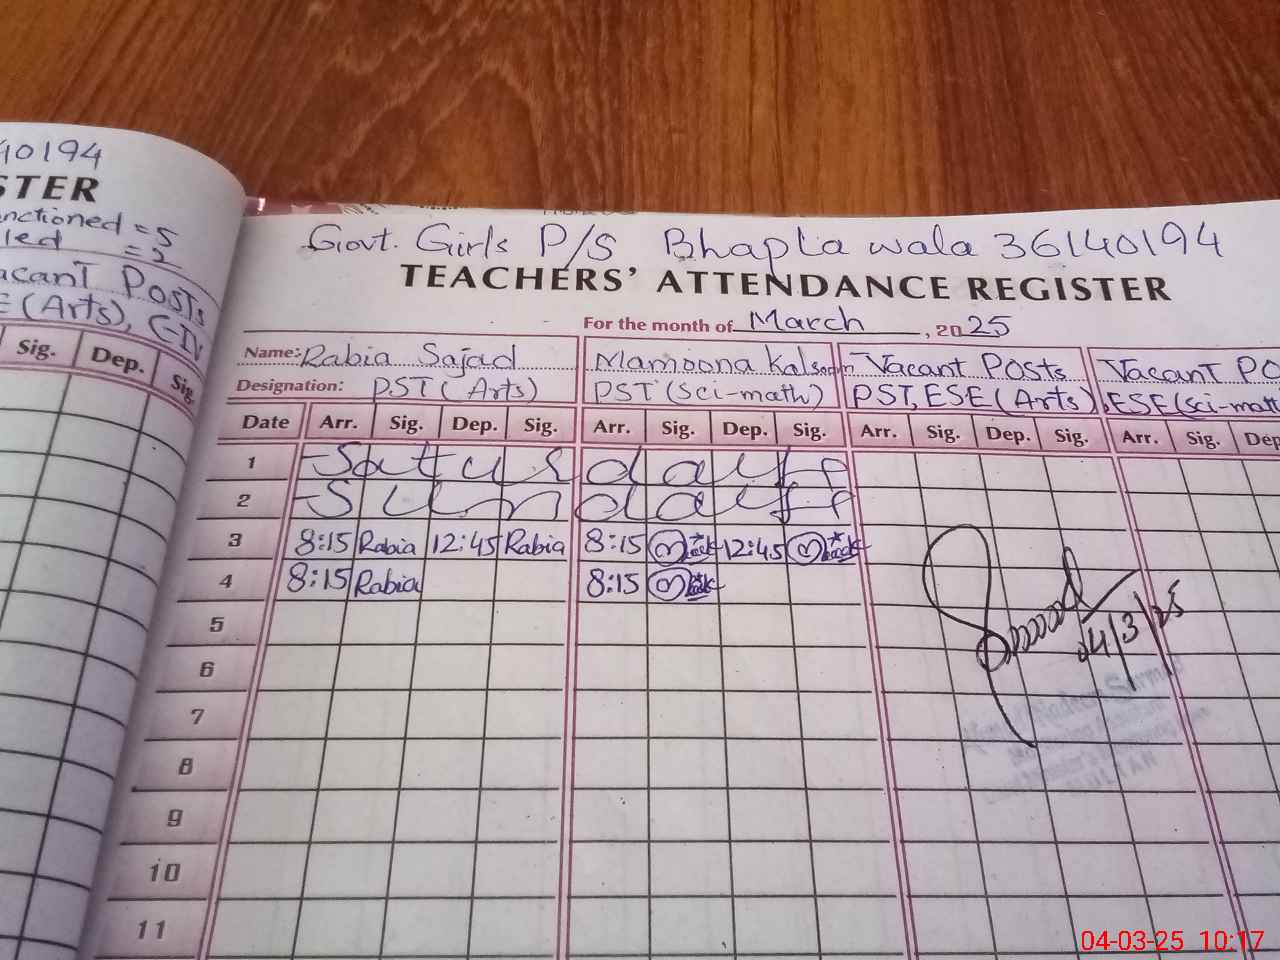 40194
STER
nctioned = 5
lled = 2
acant Posts
E (Arts), C-IV
Sig. Dep. Sig.
Govt. Girls P/S Bhapla wala 36140194
TEACHERS' ATTENDANCE REGISTER
For the month of March, 2025
Name: Rabia Sajad Mamoona Kalsoom Vacant Posts Vacant Po
Designation: PST (Arts) PST (Sci-math) PST, ESE (Arts), ESE (Sci-mat
Date Arr. Sig. Dep. Sig. Arr. Sig. Dep. Sig. Arr. Sig. Dep. Sig. Arr. Sig. Dep
1 Saturday
2 Sunday
3 8:15 Rabia 12:45 Rabia 8:15 12:45
4 8:15 Rabia 8:15
04/3/25
5
6
7
8
9
10
11
04-03-25 10:17